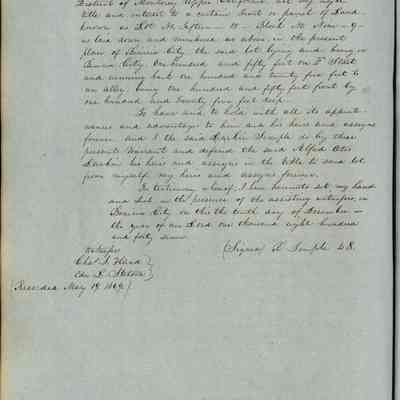 District of Monterey Upper California, all my right
title and interest to a certain tract or parcel of Land
known as Lot No
as laid down and numbered as above, in the present
plan of Benicia City the said lot lying and being in
Benicia City. One hundred and fifty feet on F Street
and running back one hundred and twenty five feet to
an alley being one hundred and fifty feet front by
one hundred and twenty five feet deep.
To have and to hold with all its appurte-
nances and advantages to him and his heirs and assigns
forever and I the said Robert Semple do by these
presents Warrant and defend the said Alfred
his heirs and assigns in the title to said lot
from myself my heirs and assigns forever.
In testimony whereof, I have hereunto set my hand
and Seal in the presence of the assisting witnesses, in
Benicia City on this the tenth day of December in
the year of our Lord one thousand eight hundred
and forty seven.
Witnesses (Signed) R. Semple L.S.
Chas.
Edw.
(Recorded May 19 1849)